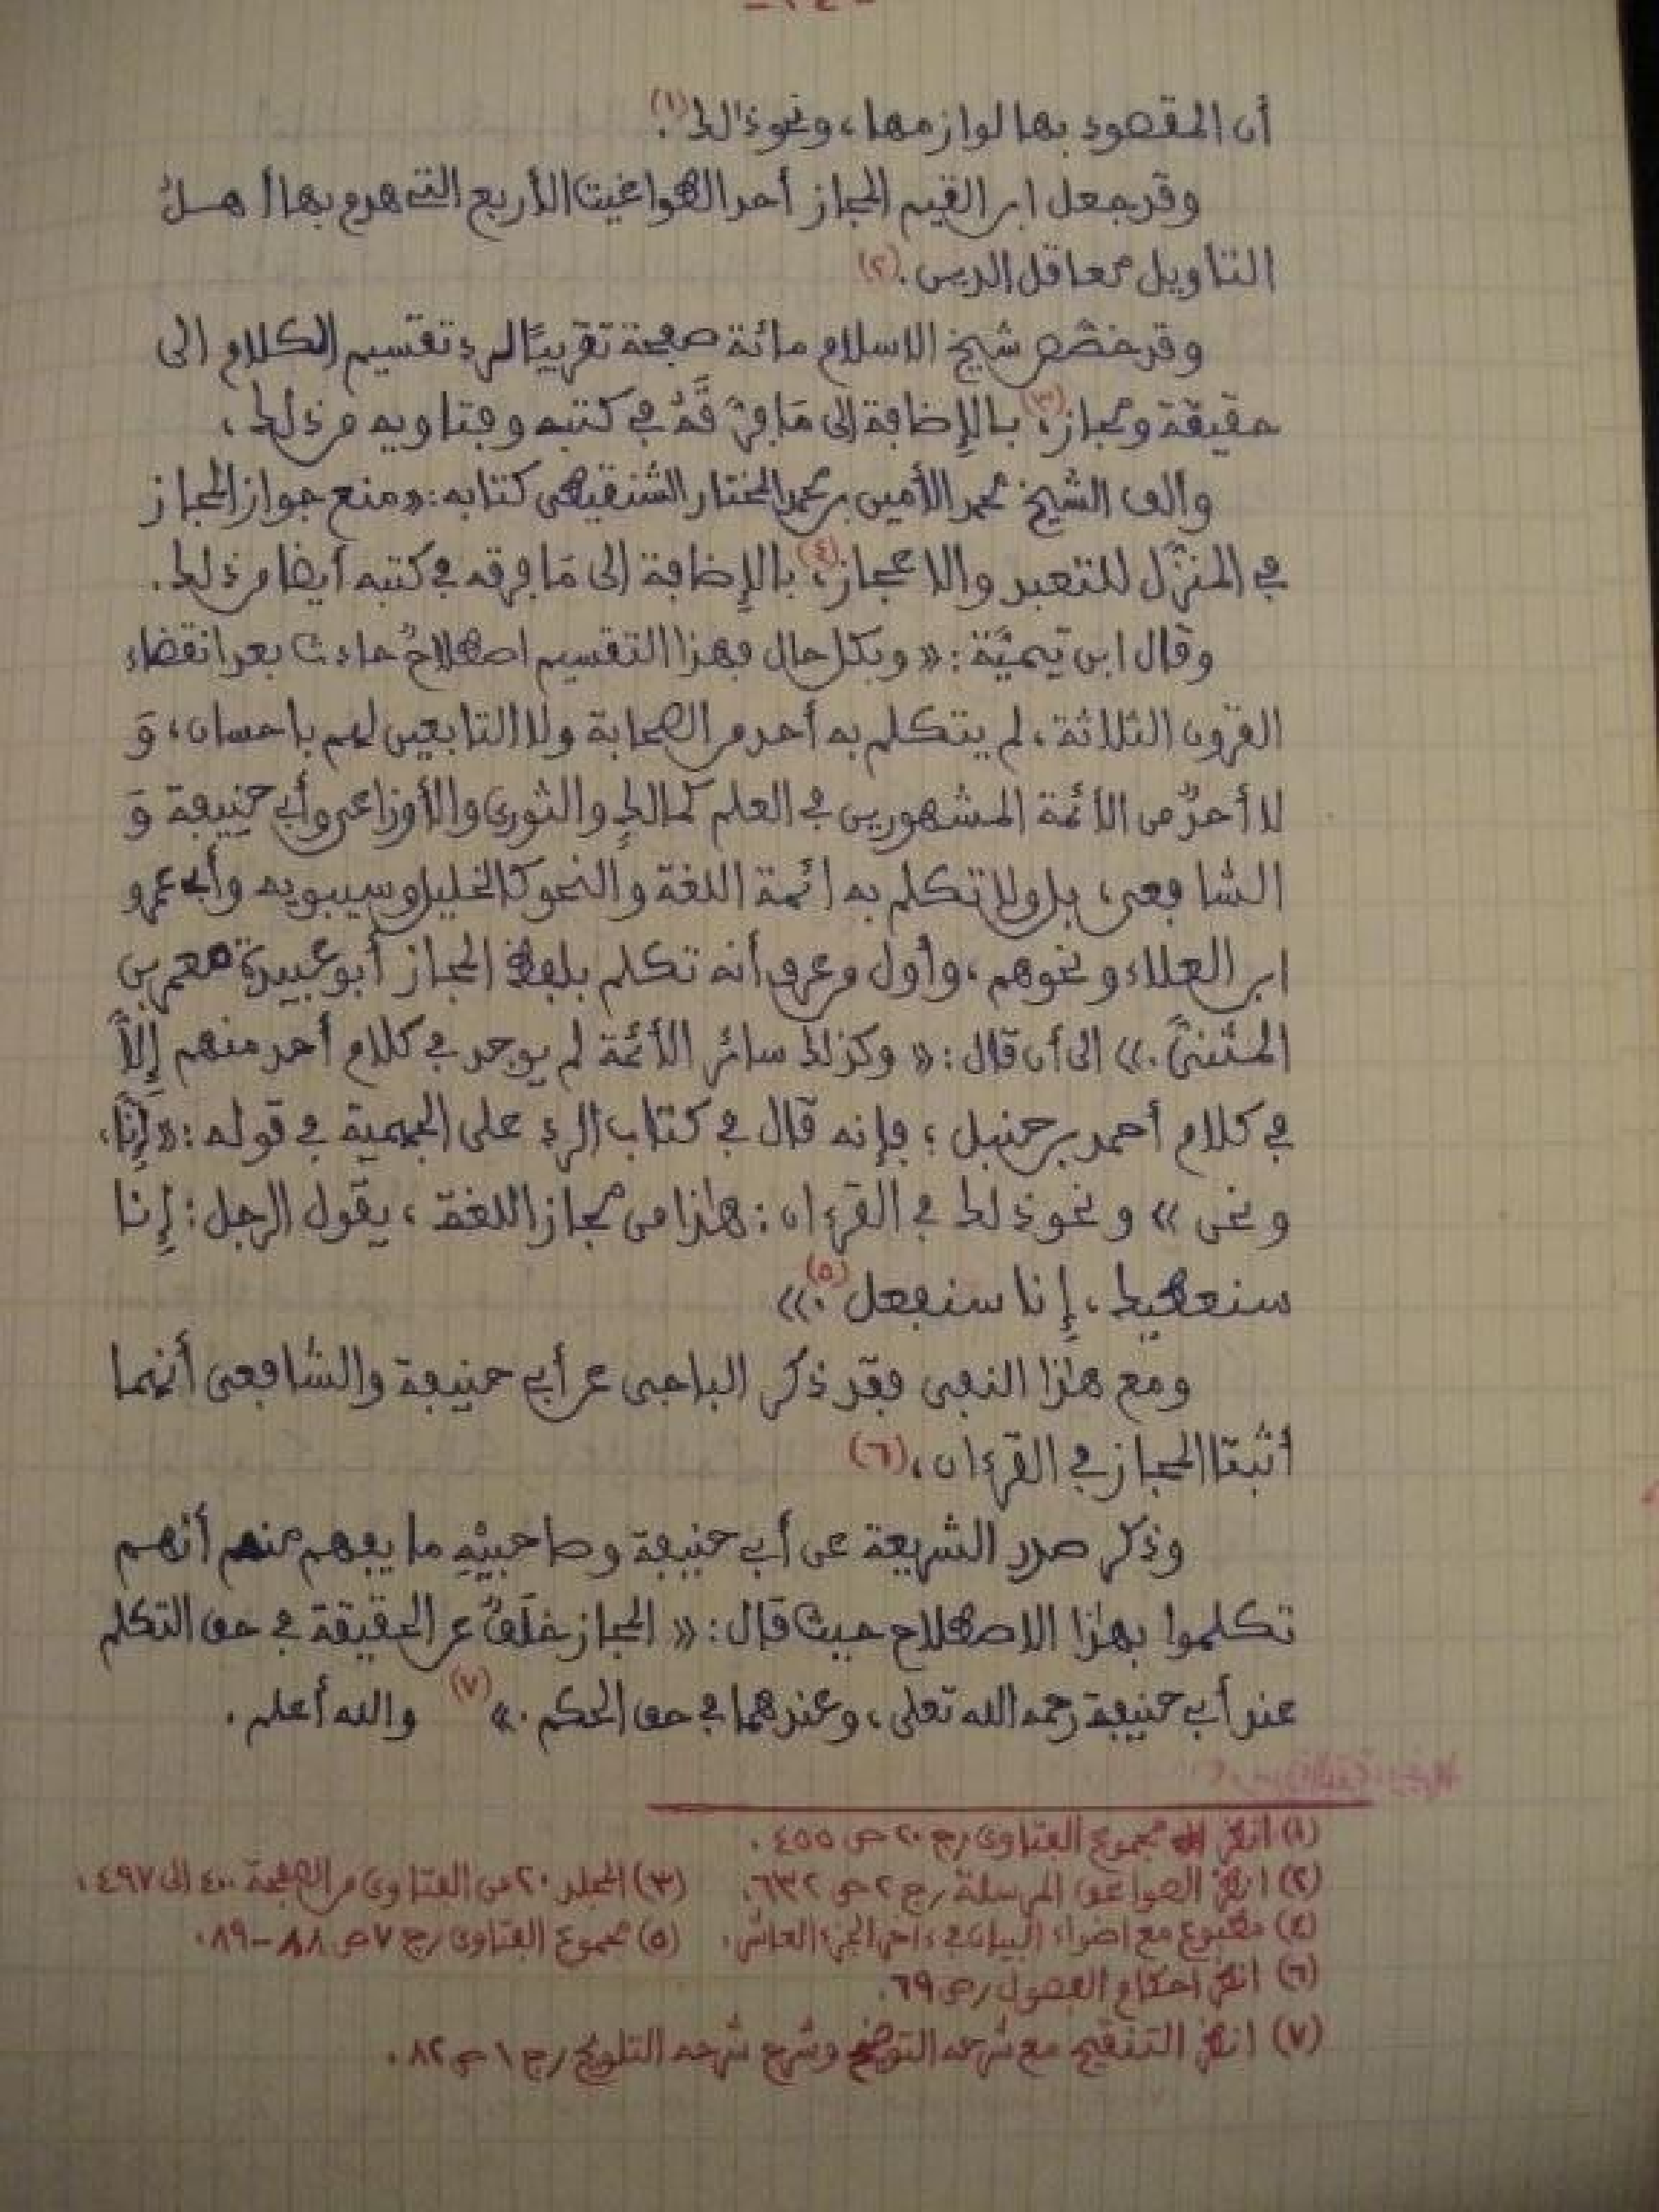 أن المقصود بها لوازمها، ونحو ذالك (١).
وقد جعل ابن القيم المجاز أحد الطواغيت الأربع التي هدم بها أهل
التأويل معاقل الدين. (٢)
وقد خصص شيخ الاسلام مائة صفحة تقريبًا لرد تقسيم الكلام إلى
حقيقة ومجاز (٣)، بالإضافة إلى مَا فرَّقَهُ في كتبه وفتاويه من ذلك،
وألف الشيخ محمد الأمين بن محمد المختار الشنقيطي كتابه: «منع جواز المجاز
في المنزّل للتعبد والاعجاز (٤)، بالإضافة إلى مَا فرقه في كتبه أيضا من ذلك.
وقال ابن تيميّة: «وبكل حال فهذا التقسيم اصطلاحٌ حادث بعد انقضاء
القرون الثلاثة، لم يتكلم به أحد من الصحابة ولا التابعين لهم باحسان، وَ
لا أحدٌ من الأئمة المشهورين في العلم كمالكٍ والثوري والأوزاعي وأبي حنيفة وَ
الشافعي، بل ولا تكلم به أئمة اللغة والنحو كالخليل وسيبويه وأبي عمرو
ابن العلاء ونحوهم، وأول من عرف أنه تكلم بلفظ المجاز أبو عبيدة معمر بن
المثنىَّ.» الى أن قال: «وكذلك سائر الأئمة لم يوجد في كلام أحد منهم إلاَّ
في كلام أحمد بن حنبل؛ فإنه قال في كتاب الرد على الجهمية في قوله: «إنَّا،
ونحن» ونحو ذلك في القرءان: هاذا من مجاز اللغة، يقول الرجل: إنا
سنعطيك، إنا سنفعل (٥).»
ومع هاذا النفي فقد ذكر الباجي عن أبي حنيفة والشافعي أنهما
أثبتا المجاز في القرءان، (٦)
وذكر صدر الشريعة عن أبي حنيفة وصاحبيْهِ ما يفهم منهم أنهم
تكلموا بهذا الاصطلاح حيث قال: «المجاز خَلَفٌ عن الحقيقة في حق التكلم
عند أبي حنيفة رحمه الله تعلى، وعندهما في حق الحكم.» (٧) والله أعلم.
(١) انظر مجموع الفتاوى ج ٢٠ ص ٤٥٥.
(٢) انظر الصواعق المرسلة ج ٢ ص ٦٣٢. (٣) المجلد ٢٠ من الفتاوى من الصفحة ٤٠٠ إلى ٤٩٧.
(٤) مطبوع مع اضواء البيان في ءاخر الجزء العاشر. (٥) مجموع الفتاوى ج ٧ ص ٨٨-٨٩.
(٦) انظر أحكام الفصول ص ٦٩.
(٧) انظر التنقيح مع شرحه التوضيح وشرح شرحه التلويح ج ١ ص ٨٢.